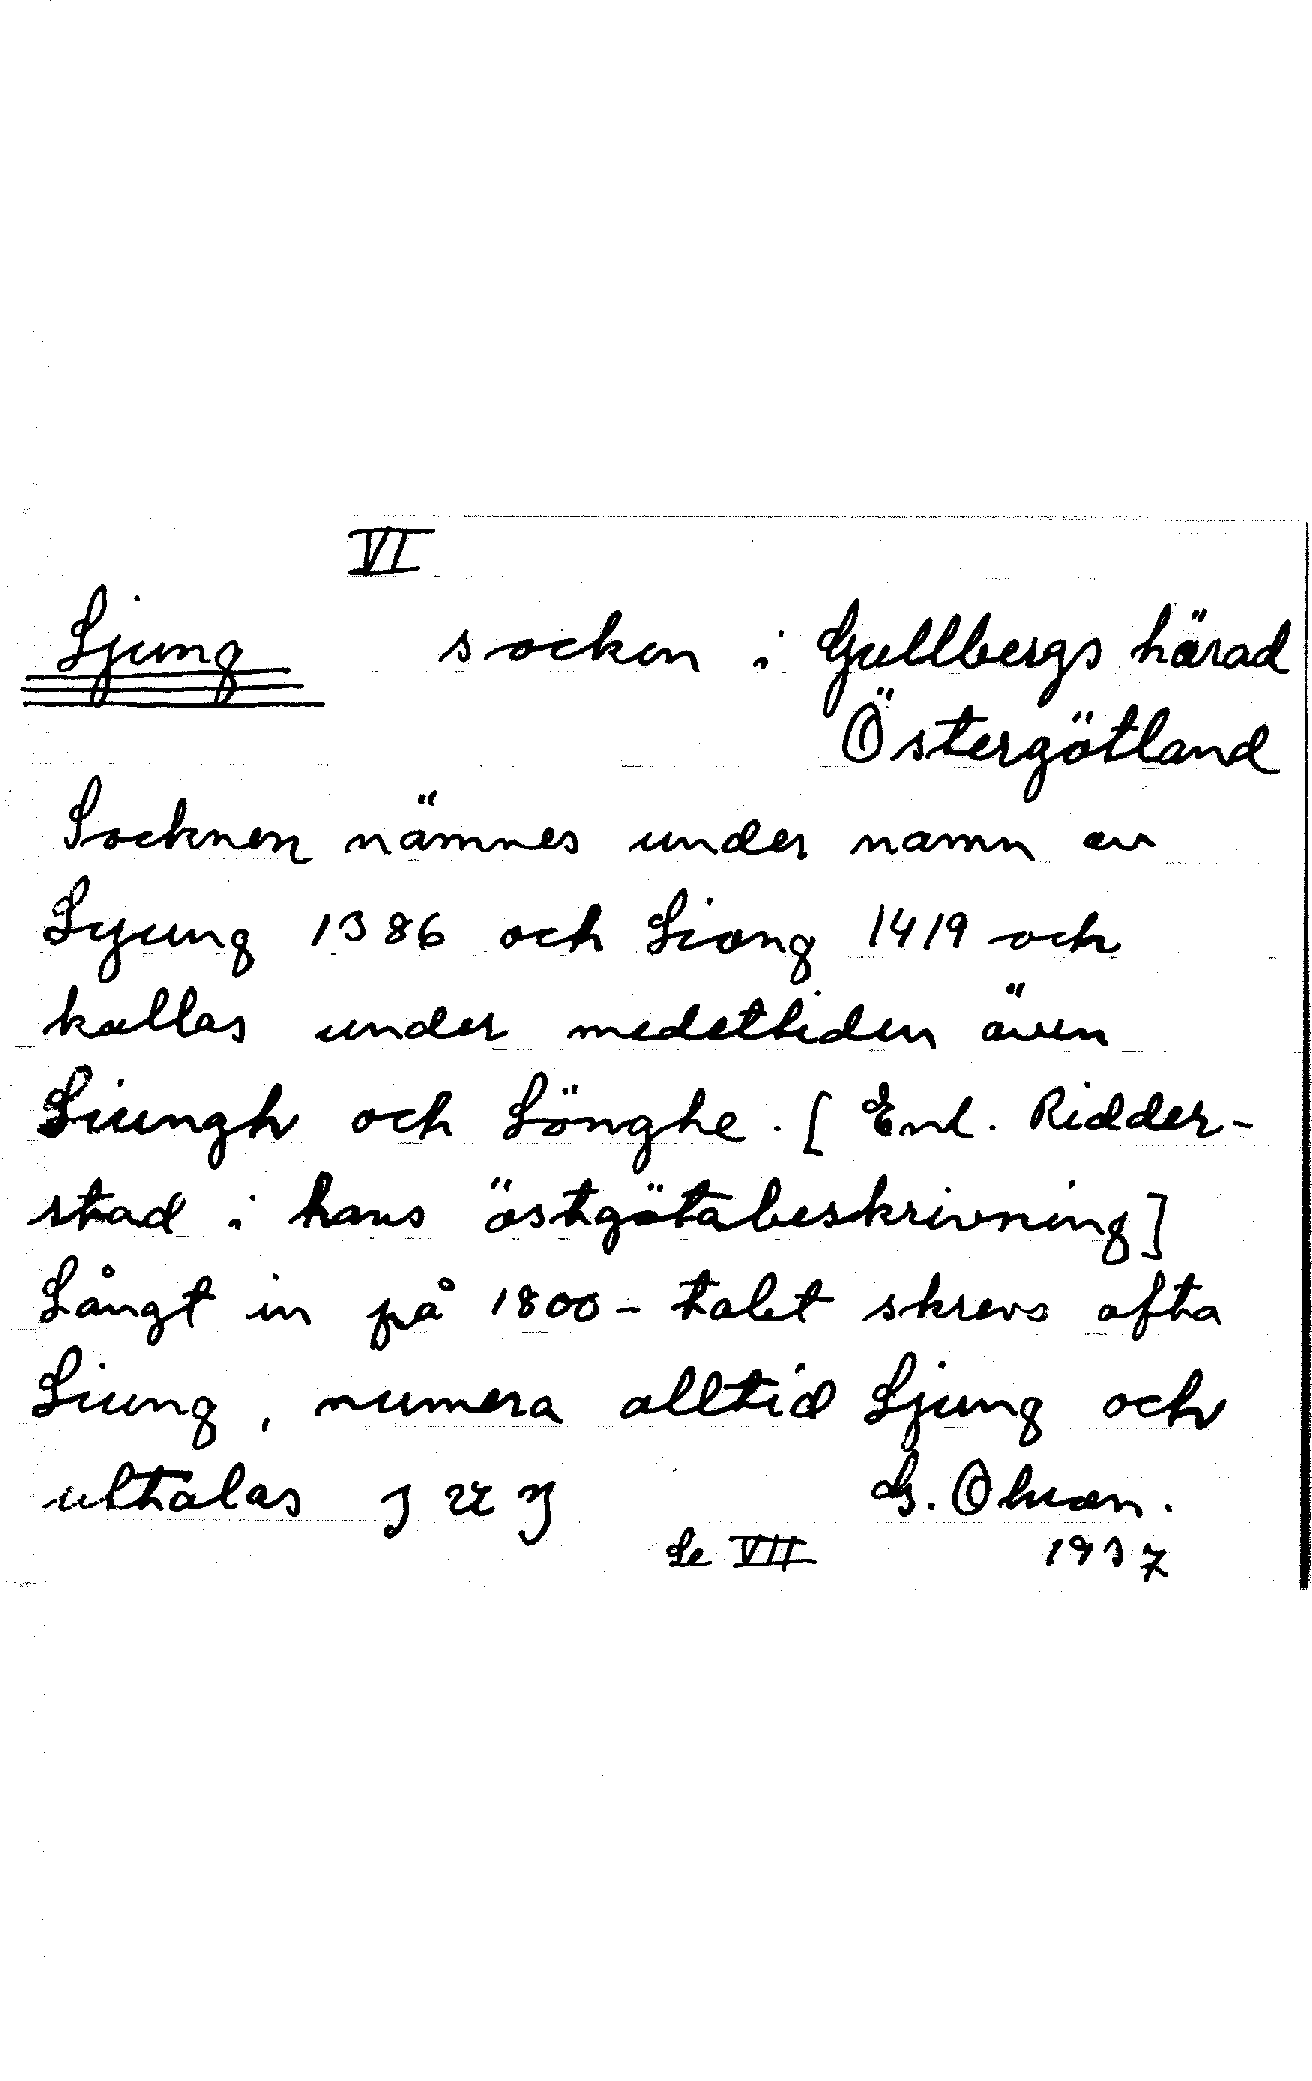 VI
Ljung socken i Gullbergs härad
Östergötland
Socknen nämnes under namn av
Lyung 1386 och Liong 1419 och
kallas under medeltiden även
Liungh och Lönghe. [Enl. Ridder-
stad i hans östgötabeskrivning]
Långt in på 1800-talet skrevs ofta
Liung, numera alltid Ljung och
uttalas
G.
Se VII 1937